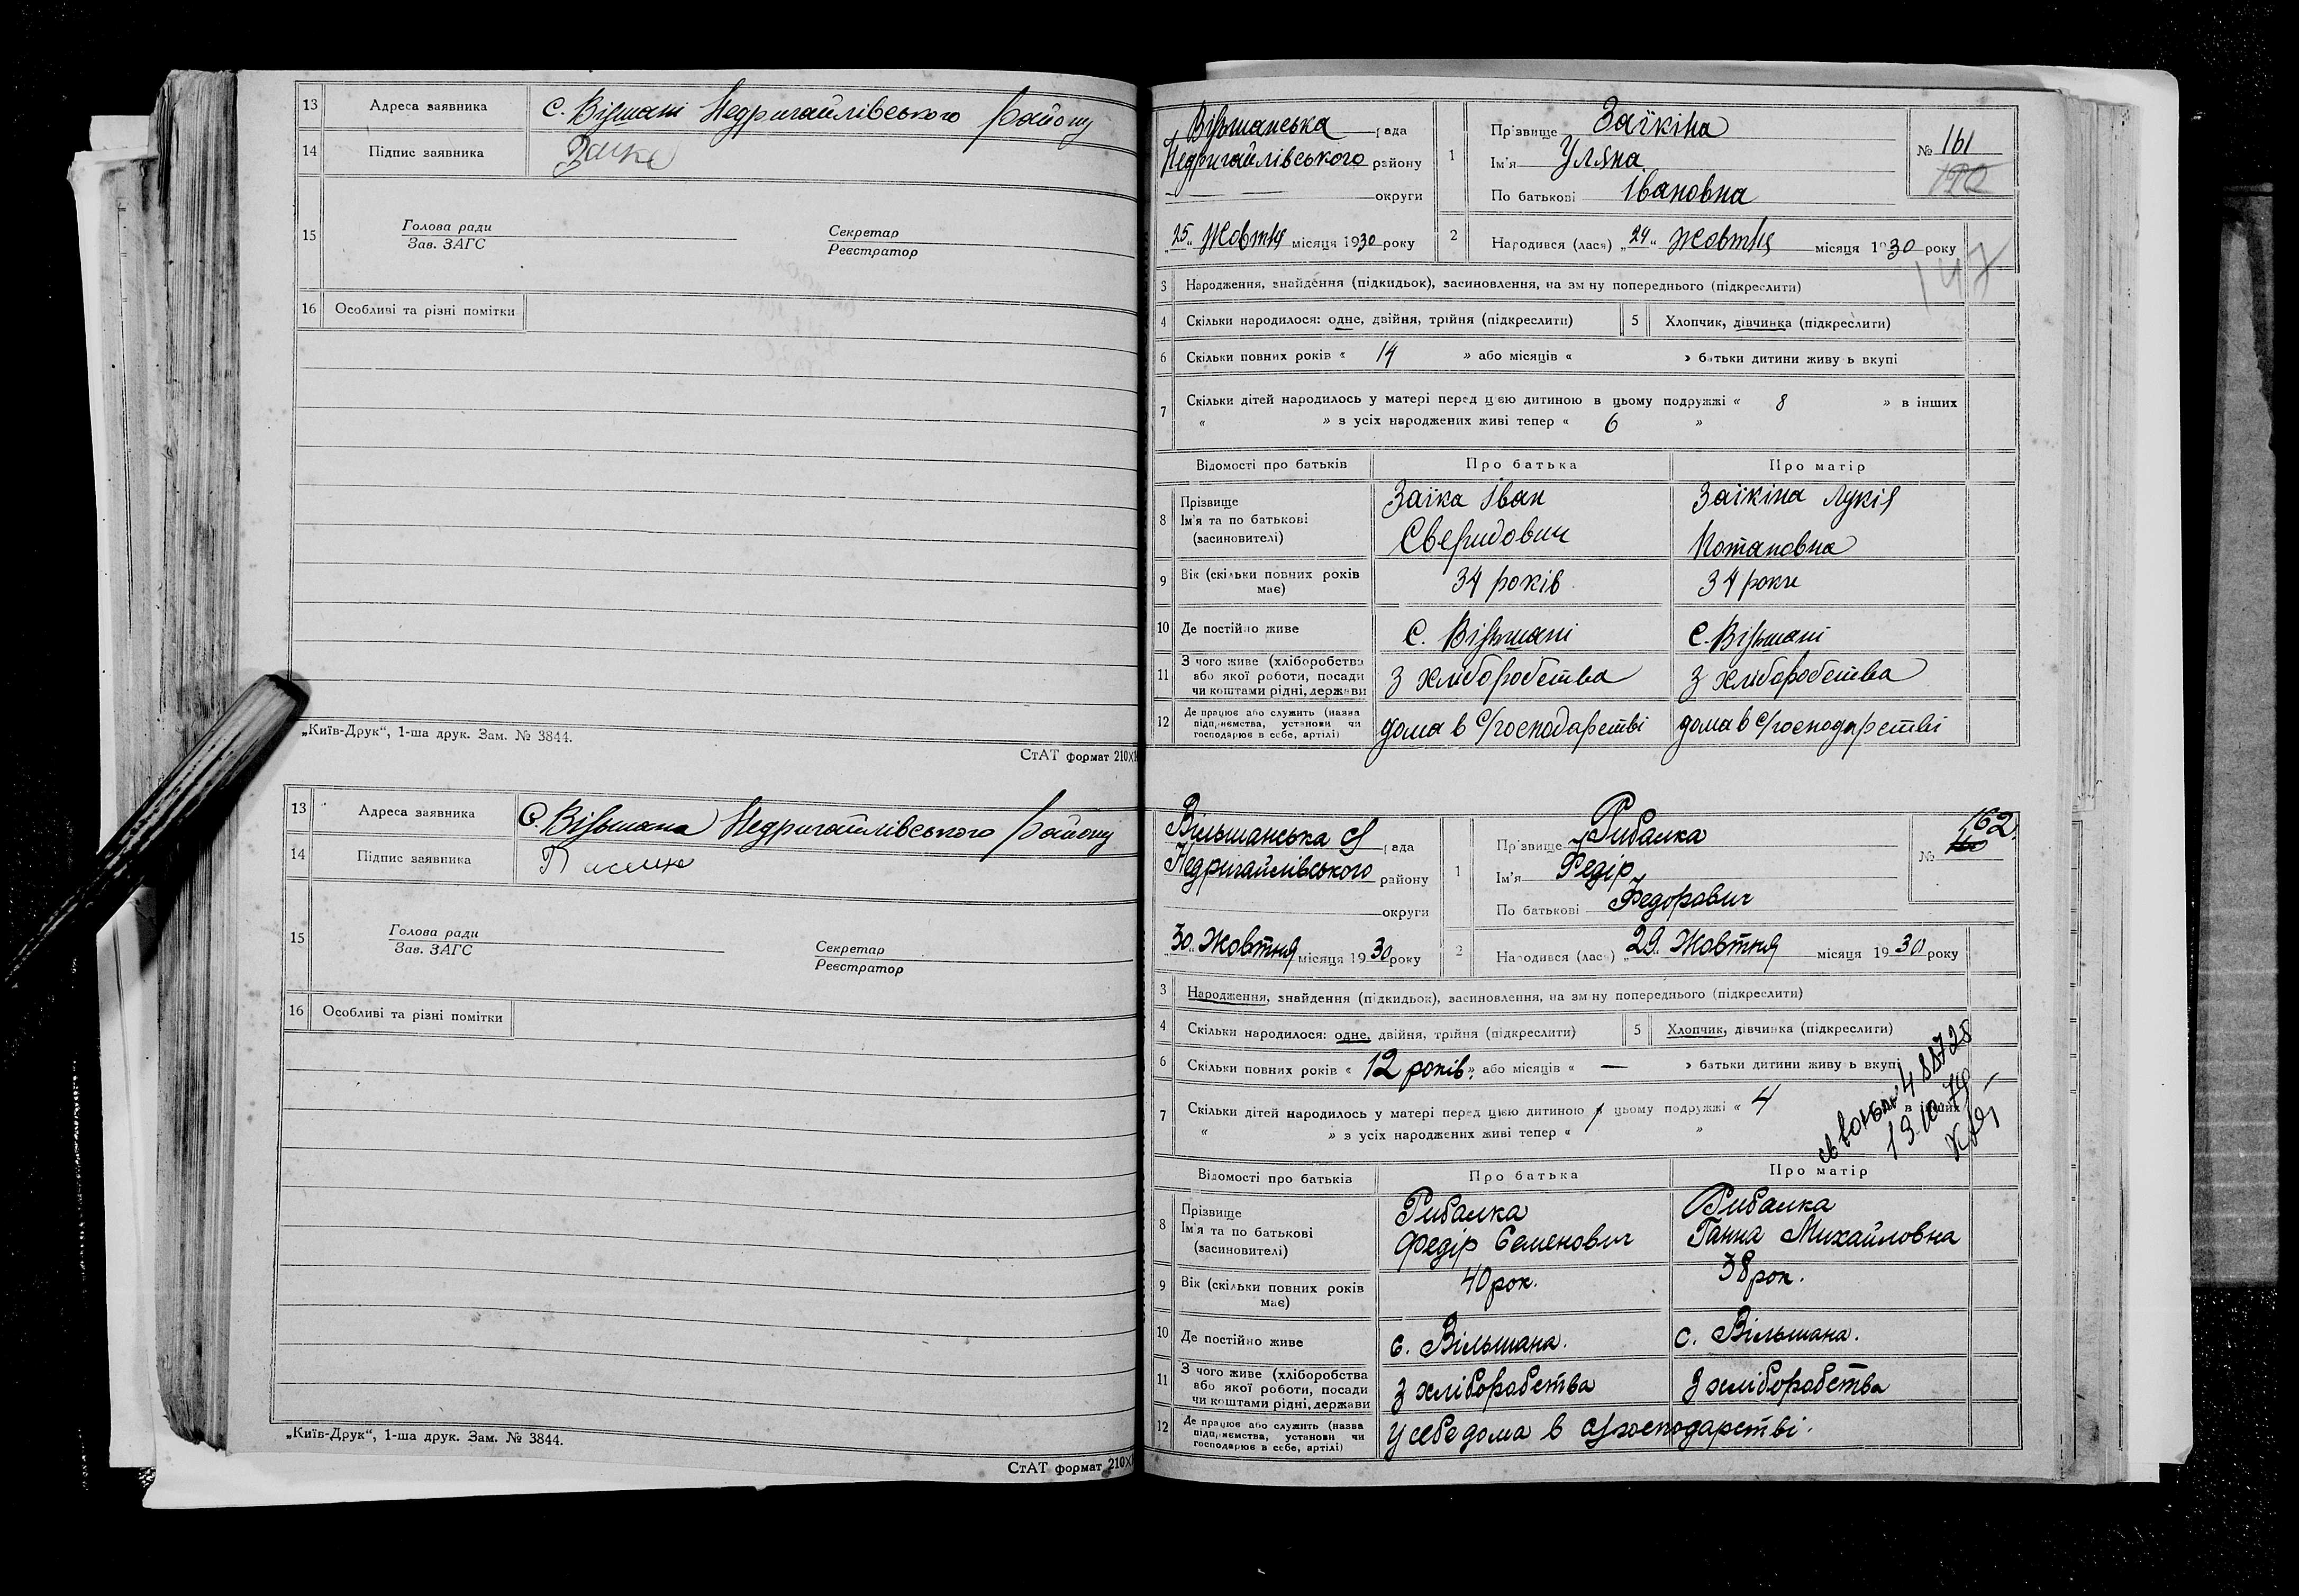 13 Адреса заявника С. Вільшані Недригайлівського району
14 Підпис заявника Заїка
15 Голова ради Секретар
Зав. ЗАГС Реєстратор
16 Особливі та різні помітки
„Київ-Друк“, 1-ша друк. Зам. № 3844.
СтАТ формат 210×
13 Адреса заявника С. Вільшана Недригайлівського району
14 Підпис заявника
15 Голова ради Секретар
Зав. ЗАГС Реєстратор
16 Особливі та різні помітки
„Київ-Друк“, 1-ша друк. Зам. № 3844.
СтАТ формат 210×
Вільшанська рада
Недригайлівського району
округи
„25„ Жовтня місяця 1930 року
1 Прізвище Заїкіна
Ім'я Уляна
По батькові Івановна
№ 161
190
2 Народився (лася) „24„ Жовтня місяця 1930 року
147
3 Народження, знайдення (підкидьок), засиновлення, на зміну попереднього (підкреслити)
4 Скільки народилося: одне, двійня, трійня (підкреслити) 5 Хлопчик, дівчинка (підкреслити)
6 Скільки повних років « 14 » або місяців « » батьки дитини живуть вкупі
7 Скільки дітей народилось у матері перед цією дитиною в цьому подружжі « 8 » в інших
« » з усіх народжених живі тепер « 6 »
Відомості про батьків Про батька Про матір
8 Прізвище Ім'я та по батькові (засиновителі) Заїка Іван Заїкіна Лукія
Сверидович Потаповна
9 Вік (скільки повних років має) 34 років 34 роки
10 Де постійно живе С. Вільшані С. Вільшані
11 З чого живе (хліборобства або якої роботи, посади чи коштами рідні, держави З хліборобства З хліборобства
12 Де працює або служить (назва підприємства, установи чи господарює в себе, артілі) дома в С/господарстві дома в С/господарстві
Вільшанська С рада
Недригайлівського району
округи
„30„ Жовтня місяця 1930 року
1 Прізвище Рибалка
Ім'я Федір
По батькові Федорович
№ 162
2 Народився (лася) „29„ Жовтня місяця 1930 року
3 Народження, знайдення (підкидьок), засиновлення, на зміну попереднього (підкреслити)
4 Скільки народилося: одне, двійня, трійня (підкреслити) 5 Хлопчик, дівчинка (підкреслити)
6 Скільки повних років « 12 років » або місяців « — » батьки дитини живуть вкупі
7 Скільки дітей народилось у матері перед цією дитиною в цьому подружжі « 4 » в інших
« » з усіх народжених живі тепер « »
488728
13.10.79
Відомості про батьків Про батька Про матір
8 Прізвище Ім'я та по батькові (засиновителі) Рибалка Рибалка
Федір Семенович Ганна Михайловна
9 Вік (скільки повних років має) 40 рок. 38 рок.
10 Де постійно живе с. Вільшана. с. Вільшана.
11 З чого живе (хліборобства або якої роботи, посади чи коштами рідні, держави З хліборобства З хліборобства
12 Де працює або служить (назва підприємства, установи чи господарює в себе, артілі) У себе дома в с/господарстві.